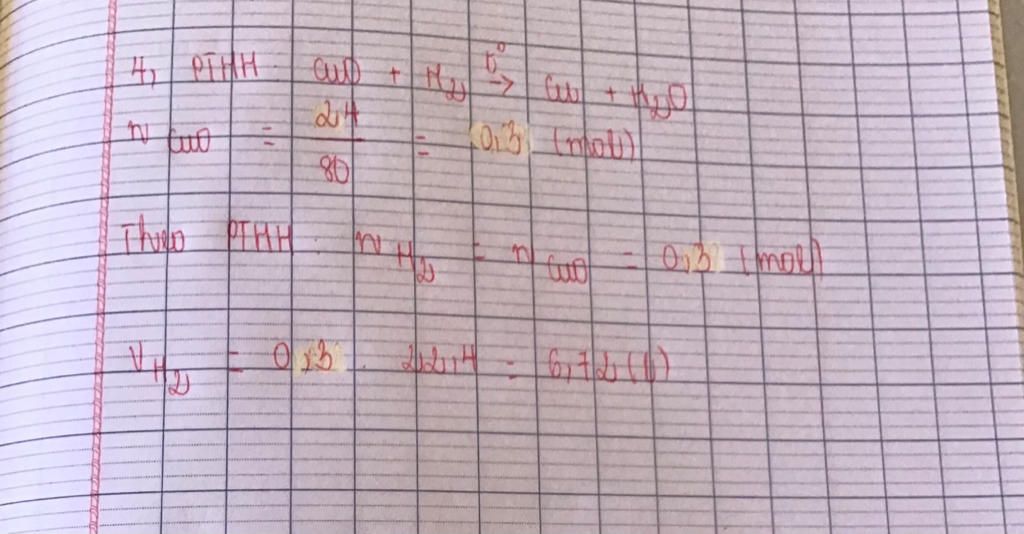 4, PTHH CuO + H2 t° → Cu + H2O
n CuO = 24 / 80 = 0,3 (mol)
Theo PTHH : n H2 = n CuO = 0,3 (mol)
V H2 = 0,3 . 22,4 = 6,72 (l)